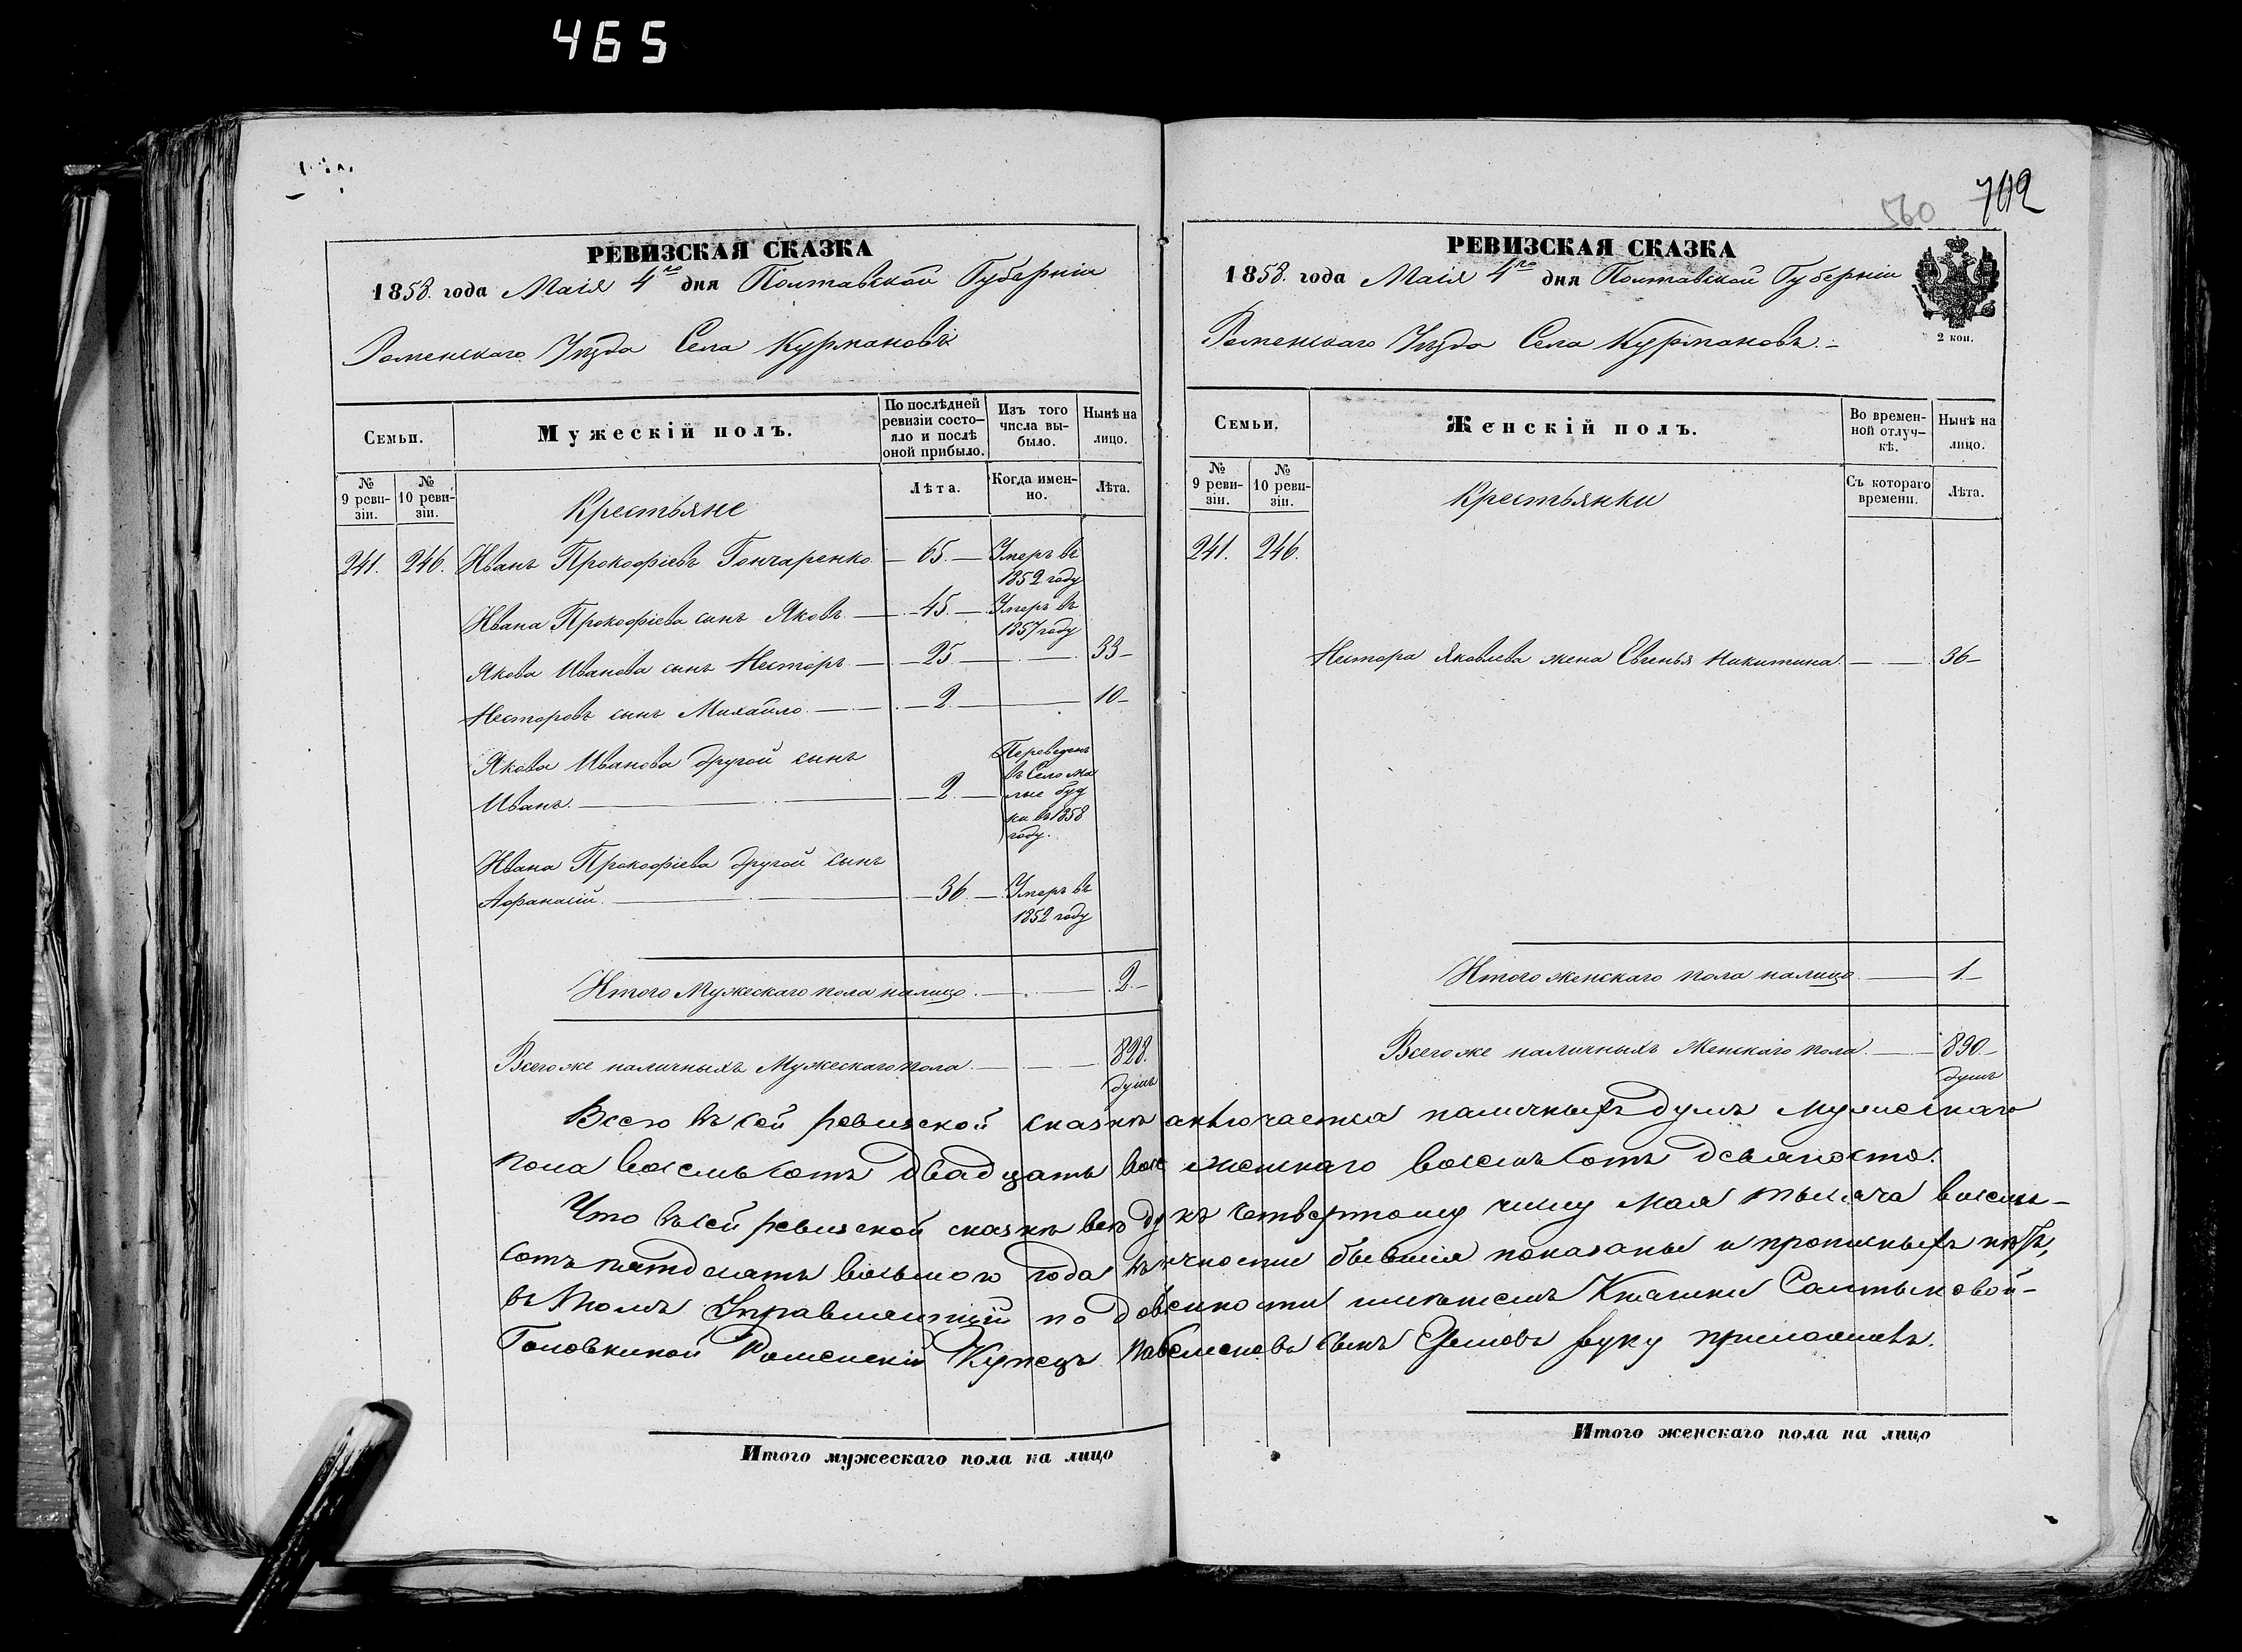 465
РЕВИЗСКАЯ СКАЗКА
1858. года Маія 4го дня Полтавской Губерніи
Роменскаго Уѣзда Села Курмановъ
Семьи.
Мужескій полъ.
По послѣдней ревизіи состояло и послѣ оной прибыло.
Изъ того числа выбыло.
Нынѣ на лицо.
№ 9 ревизіи.
№ 10 ревизіи.
Крестьяне
Лѣта.
Когда именно.
Лѣта.
241. 246. Иванъ Прокофіевъ Гончаренко — 65. — Умеръ въ
1852 году
Ивана Прокофіева сынъ Яковъ — 45. — Умеръ въ
1857 году
Якова Иванова сынъ Несторъ — 25. — 33
Несторовъ сынъ Михайло. — 2. — 10
Якова Иванова другой сынъ
Иванъ. — 2. — Переведенъ
въ Село ма
лые буд
ки въ 1858
году.
Ивана Прокофіева другой сынъ
Афанасій. — 36. — Умеръ въ
1852 году
Итого Мужескаго пола налицо. — 2.
Всего же наличныхъ Мужескаго пола. — 828.
душъ
560
702
РЕВИЗСКАЯ СКАЗКА
1858. года Маія 4го дня Полтавской Губерніи
2 коп.
Роменскаго Уѣзда Села Курмановъ. –
Семьи.
Женскій полъ.
Во временной отлучкѣ.
Нынѣ на лицо.
№ 9 ревизіи.
№ 10 ревизіи.
Крестьянки
Съ котораго времени.
Лѣта.
241. 246.
Нестора Яковлева жена Евгенья Никитина. — 36
Итого женскаго пола налицо. — 1.
Всего же наличныхъ Женскаго пола. — 890.
душъ
Всего въ сей ревизской сказкѣ заключается наличныхъ душъ мужескаго
пола восемьсотъ двадцать женскаго восемьсотъ девяносто.
Что въ сей ревизской сказкѣ всѣ къ четвертому числу мая тысяча восемь-
сотъ пятдесятъ восьмого года бывшія показаны и прописныхъ нѣтъ,
въ томъ Управляющій по Княгини Салтыковой-
Головкиной Роменскій Купецъ сынъ руку приложилъ.
Итого мужескаго пола на лицо
Итого женскаго пола на лицо